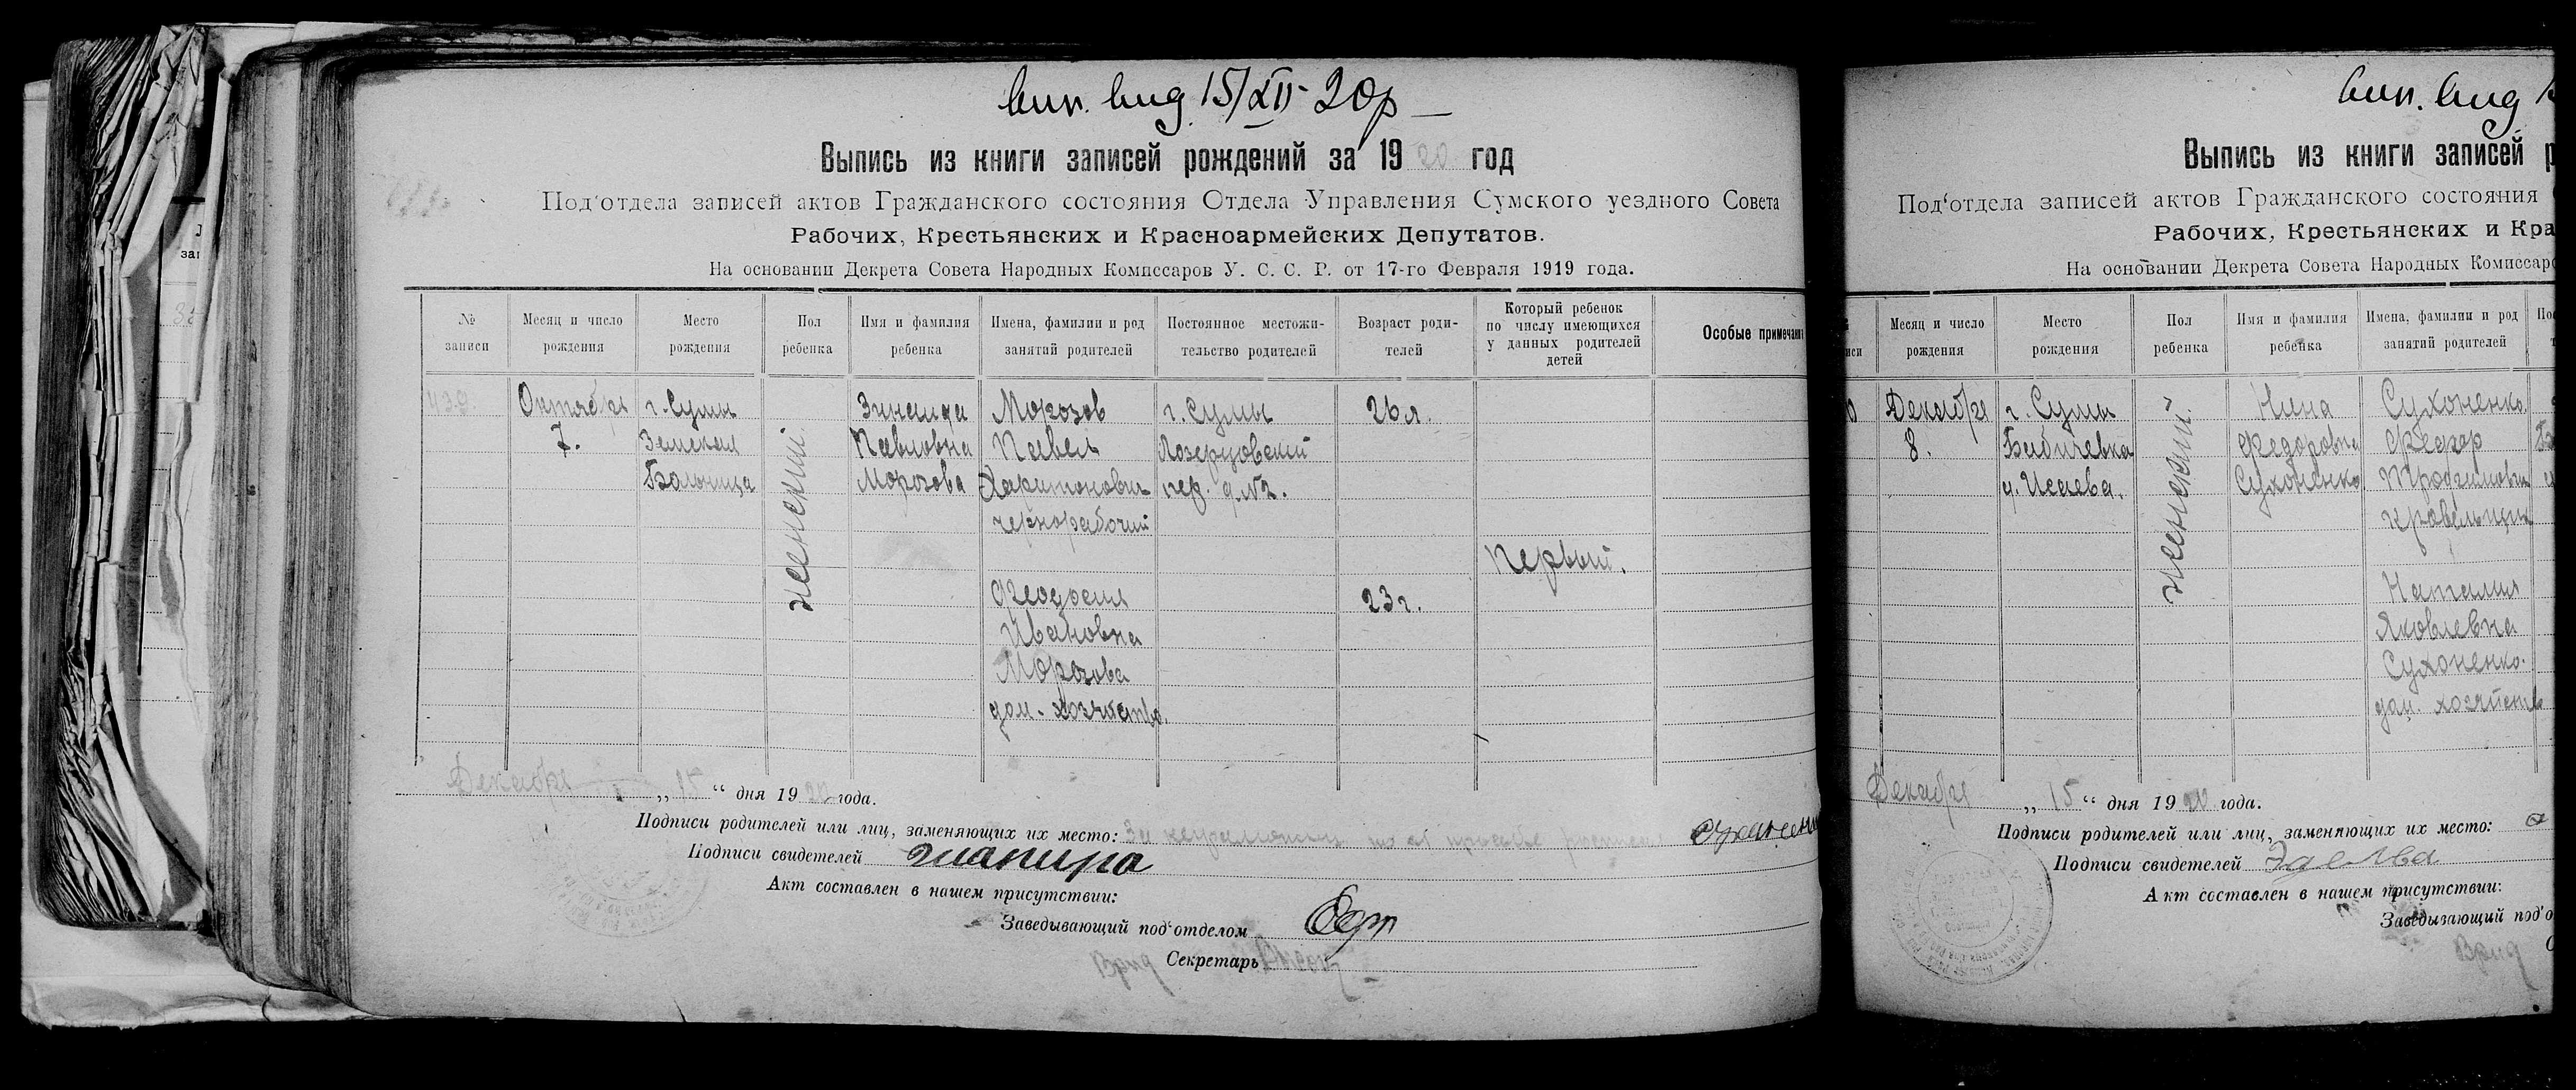 вип. вид 15/XII - 20р
Выпись из книги записей рождений за 1920 год
Под'отдела записей актов Гражданского состояния Отдела Управления Сумского уездного Совета
Рабочих, Крестьянских и Красноармейских Депутатов.
На основании Декрета Совета Народных Комиссаров У. С. С. Р. от 17-го Февраля 1919 года.
№ записи
Месяц и число рождения
Место рождения
Пол ребенка
Имя и фамилия ребенка
Имена, фамилии и род занятий родителей
Постоянное местожительство родителей
Возраст родителей
Который ребенок по числу имеющихся у данных родителей детей
Особые примечания
Октября
7.
г. Сумы
Земская
Больница
женский.
Зинаида
Павловна
Морозова
Морозов
Павел
Харитонович
чернорабочий
Феодосия
Ивановна
Морозова
дом. хозяйство.
г. Сумы
пер. д. №2.
26 л.
23 г.
Первый.
Декабря „15“ дня 1920 года.
Подписи родителей или лиц, заменяющих их место: За неграмотн по просьбе
Подписи свидетелей Шапиро
Акт составлен в нашем присутствии:
Заведывающий под'отделом
Врид Секретарь
вип. вид
Выпись из книги записей р
Под'отдела записей актов Гражданского состояния
Рабочих, Крестьянских и Кра
На основании Декрета Совета Народных Комиссаро
Месяц и число рождения
Место рождения
Пол ребенка
Имя и фамилия ребенка
Имена, фамилии и род занятий родителей
Декабря
8.
г. Сумы
у. Исаева.
женский.
Нина
Федоровна
Сухоненко
Сухоненко
Федор
Трофимович
кровельщик
Наталия
Яковлевна
Сухоненко.
дом. хозяйств
Декабря „15“ дня 1920 года.
Подписи родителей или лиц, заменяющих их место:
Подписи свидетелей
Акт составлен в нашем присутствии:
Заведывающий под'о
Врид